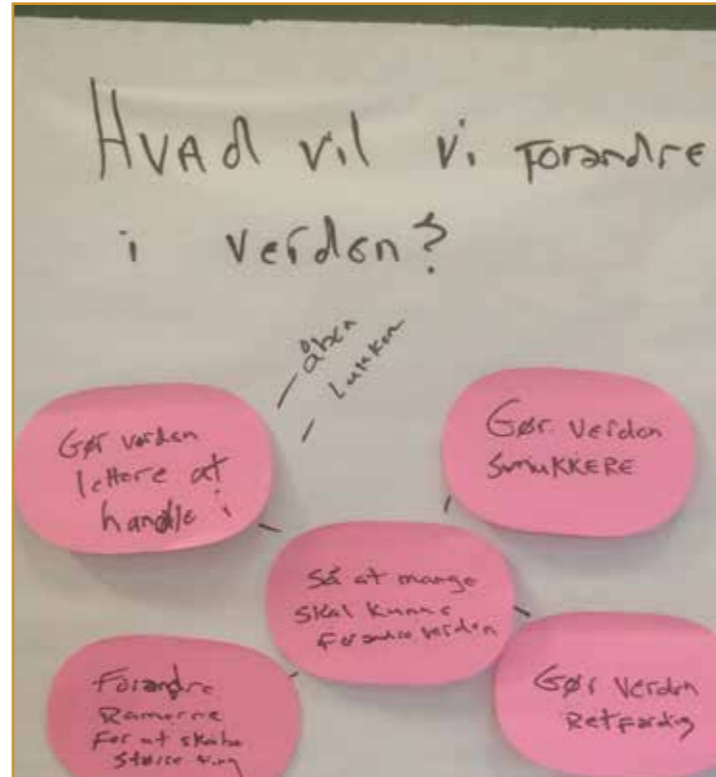 HVAd vil vi forandre
i verden?
åben
lukken
Gør verden
lettere at
handle i
Gør verden
smukkere
Så at mange
skal kunne
forandre verden
Forandre
Ramerne
for at skabe
større ting
Gør verden
Retfærdig